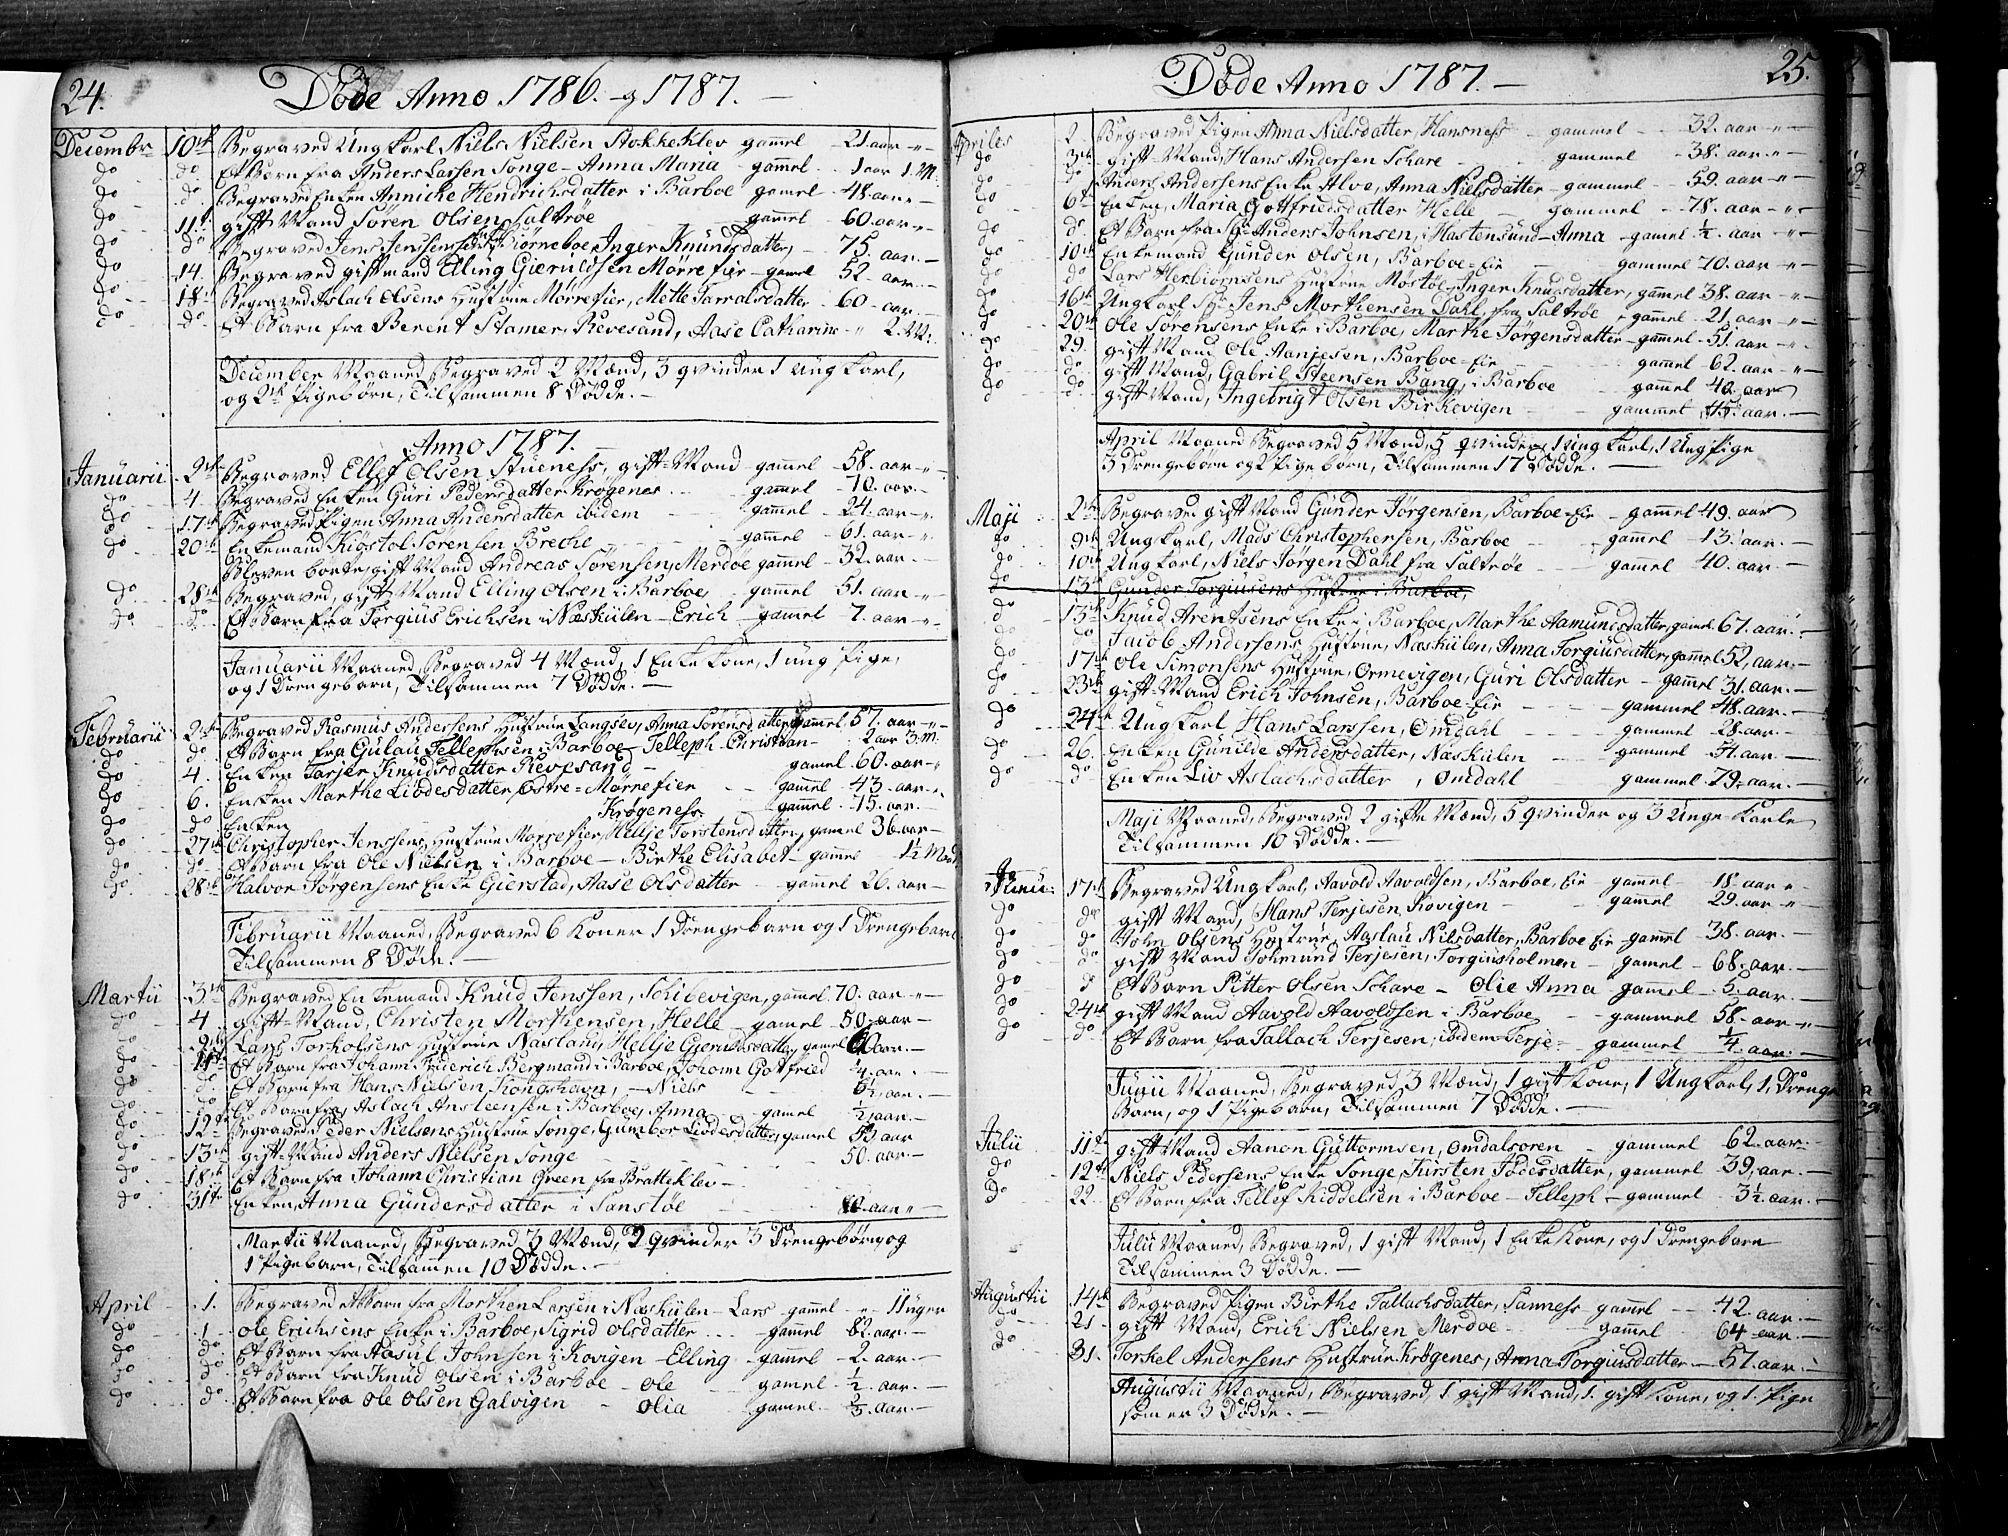 24.
Døde Anno 1786. og 1787.
Decembr 10de Begraved Ungkarl Niels Nielsen Stokkeklev gammel 21 aar
do do Et Barn fra Anders Larsen Songe - Anna Maria gammel 1 aar 1 M:
do do Begraved Enken Annicke Hendrichsdatter i Barboe gamel 48 aar
do 11te gift Mand Søren Olsen Saltrøe gammel 60 aar
do do Begraved Jens Jenssens Biørneboe, Inger Knudsdatter, 75 aar
do 14. Begraved gift mand Elling Gieruldsen Mørrefier gamel 52 aar
do 18de Begraved Aslach Olsens Hustrue Mørrefier, Mette Tarralsdatter 60 aar
do do Et Barn fra Berent Stamer, Revesand, Aase Catharine 2 M:
December Maaned Begraved 2 Mænd, 3 qvinder 1 ungkarl,
og 2de Pigebørn, Tilsammen 8 Dødde.
Anno 1787.
Januarii 2de Begraved Ellef Olsen Stueness, gift Mand gammel 58 aar
do 4. Begraved Enken Guri Pedersdatter Krøgenes gammel 70 aar
do 17de Begraved Pigen Anna Andersdatter ibidem gammel 24 aar
do 20de Enkemand Kiøstol Sørensen Breche gammel 61 aar
Bleven borte, gift Mand Andreas Sørensen, Merdøe gammel 32 aar
do 28de Begraved, gift Mand Elling Olsen i Barboe gammel 51 aar
do do Et Barn fra Torgius Erichsen i Næskilen - Erich gamel 7 aar
Januarii Maaned, Begraved 4 Mænd, 1 Enke kone, 1 ung Pige,
og 1 Drengebarn, Tilsammen 7 Dødde.
Februarii 2de Begraved Rasmus Andersens Hustrue Langsev, Anna Sørensdatter gamel 57 aar
do do Et Barn fra Gulau Tellephsen i Barboe - Telleph Christian 2 aar 3 M:
do 4. Enken Tarjer Knudsdatter Revesand gamel 60 aar
do 6. Enken Marthe Liødesdatter østre Mørrefier gammel 43 aar
do do Enken Krøgeness gammel 75 aar
do 27de Christopher Jenssens Hustrue Morrefier, Hellje Torstensdatter, gamel 36 aar
do do Et Barn fra Ole Nielsen i Barboe - Birthe Elisabet gammel 1½ Maa
do 28de Halvor Jørgensens Enke Gierstad, Aase Olsdatter gammel 26 aar
Februarii Maaned, Begraved 6 Koner 1 Drengebarn og 1 Drengebarn
Tilsammen 8 Døde.
Martii 3de Begraved Enkemand Knud Jenssen, Schibevigen, gamel 70 aar
do 4 gift Mand, Christen Morthensen, Helle gamel 50 aar
Lars Torkolsens Hustrue Næsland, Hellje Gieruldsdatter, gamel 60 aar
do 11te Et Barn fra Johann Friderich Bergmand i Barboe, Johann Gotfried ¼ aar
do do Et Barn fra Hans Nielsen Kongshavn, - Niels 5½ aar
do do Et Barn fra Aslach Ansteensen i Barboe, Anna gamel ½ aar
do 12te Begraved Peder Nielsens Hustrue Songe, Gumbor Liodesdatter, gamel 53 aar
do 13de gift Mand Anders Nielsen Songe 50 aar
do 18de Et Barn fra Johann Christian Green fra Bratteklev
do 31te Enken, Anna Gundersdatter i Sanstøe aar
Martii Maaned, Begraved 3 Mænd, 2 qvinder 3 Drengebørn, og
1 Pigebarn, Tilsamen 10 Dødde.
April 1. Begraved et Barn fra Morthen Larsen i Næskilen - Lars gammel 11 uger
do 1 Ole Erichsens Enke i Barboe, Sigrid Olsdatter gammel 82 aar
do do Et Barn fra Aasul Johnsen i Kovigen - Elling gammel 2 aar
do do Et Barn fra Knud Olsen i Barboe - Ole gamel ½ aar
do do Et Barn fra Ole Olsen Galvigen - Olia gammel ½ aar
25.
Døde Anno 1787.
Apriles 2 Begraved Pigen Anna Nielsdatter, Hansness gammel 32 aar
do 3de gift Mand, Hans Andersen Schare gammel 38 aar
do do Anders Andersens Enke Alve, Anna Nielsdatter gammel 59 aar
do 6te Enken, Maria Gottfriedsdatter Helle gammel 78 aar
do do Et Barn fra Sr Anders Johnsen, i Hastensund - Anna gamel ½ aar
do 10de Enkemand Gunder Olsen, Barboe Eie gammel 70 aar
do do Lars Herbiørnsens Hustrue Møstøl, Inger Knudsdatter, gammel 38 aar
do 16de Ungkarl Sr Jens Morthensen Dahl, fra Saltrøe gammel 21 aar
do 20de Ole Sørensens Enke i Barboe, Marthe Jørgensdatter gammel 51 aar
do 29. gift Mand Ole Aanjesen, Barboe Eie gammel 62 aar
do do gift Mand, Gabriel Steensen Bang, i Barboe gammel 40 aar
do do gift Mand, Ingebrigt Olsen Birkevigen gammel 45 aar
April Maaned Begraved 5 Mænd, 5 qvinder, 1 ungkarl, 1 Ung Pige
3 Drengebørn og 2 Pigebørn, Tilsammen 17 Dødde.
Maji 2de Begraved gift Mand Gunder Jørgensen, Barboe Eie gammel 49 aar
do 9de Ungkarl, Mads Christophersen, Barboe gammel 13 aar
do 10de Ungkarl, Niels Jørgen Dahl fra Saltrøe gammel 40 aar
do 13de Gunder Torgiusens Hustrue i Barboe,
do 13de Knud Arentsens Enke i Barboe, Marthe Aamundsdatter, gamel 67 aar
do do Jacob Andersens Hustrue, Næskilen, Anna Torgiusdatter, gammel 52 aar
do 17de Ole Simonsens Hustrue, Ormevigen, Guri Olsdatter gammel 31 aar
do 23de gift Mand Erich Johnsen, Barboe Eie gammel 48 aar
do 24de Ungkarl, Hans Larssen, Omdahl gammel 28 aar
do 26. Enken Gunilde Andersdatter, Næskilen gammel 51 aar
do do Enken Liv Aslachsdatter, Omdahl gammel 79 aar
Maji Maaned, Begraved 2 gifte Mænd, 5 qvinder og 3 Unge Karle
Tilsammen 10 Dødde.
Junii 17de Begraved Ungkarl, Aavold Aavoldsen, Barboe Eie gammel 18 aar
do do gift Mand, Hans Terjesen, Kovigen gammel 29 aar
do do John Olsens Hustrue, Aaslau Nilsdatter, Barboe Eie gammel 38 aar
do do gift Mand Johmund Terjesen, Torgiusholmen gamel 68 aar
do d Et Barn Pitter Olsen Schare - Olie Anna gammel 5 aar
do 24de gift Mand Aavold Aavoldsen i Barboe gammel 58 aar
do do Et Barn fra Tallach Terjesen, ibidem - Terje gammel ¼ aar
Junii Maaned, Begraved, 3 Mænd, 1 gift Kone, 1 Ungkarl, 1 Drenge
Barn, og 1 Pigebarn, Tilsammen 7 Dødde.
Julii 11te gift Mand Aanen Guttormsen, Omdalsøren gammel 62 aar
do 12te Niels Pedersens Enke Songe, Kirsten Pedersdatter, gammel 39 aar
do 22. Et Barn fra Tellef Kiddelsen i Barboe - Telleph gammel 3½ aar
Julii Maaned, Begraved, 1 gift Mand, 1 Enke Kone, og 1 Drengebarn
Tilsammen 3 Dødde.
Augustii 14de Begraved Pigen Birthe Tallachsdatter, Sanness gammel 42 aar
do 21. gift Mand, Erich Nielsen Merdøe gammel 64 aar
do 31. Torkel Andersens Hustrue Krøgenes, Anna Torgiusdatter 57 aar
Augustii Maaned, Begraved, 1 gift Mand, 1 gift Kone, og 1 Pige
som er 3 Dødde.